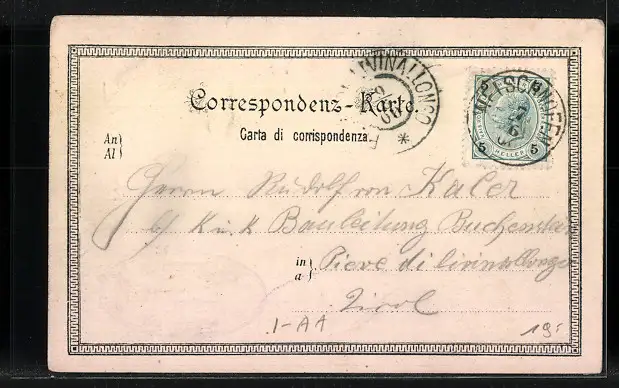 Correspondenz-Karte.
Carta di corrispondenza.
An
Al
Herrn Rudolf von Kaler
k. u. k. Bauleitung Buchenstein
in
a
Pieve di Livinallongo
Tirol
LIVINALLONGO
5 HELLER 5
I-AA